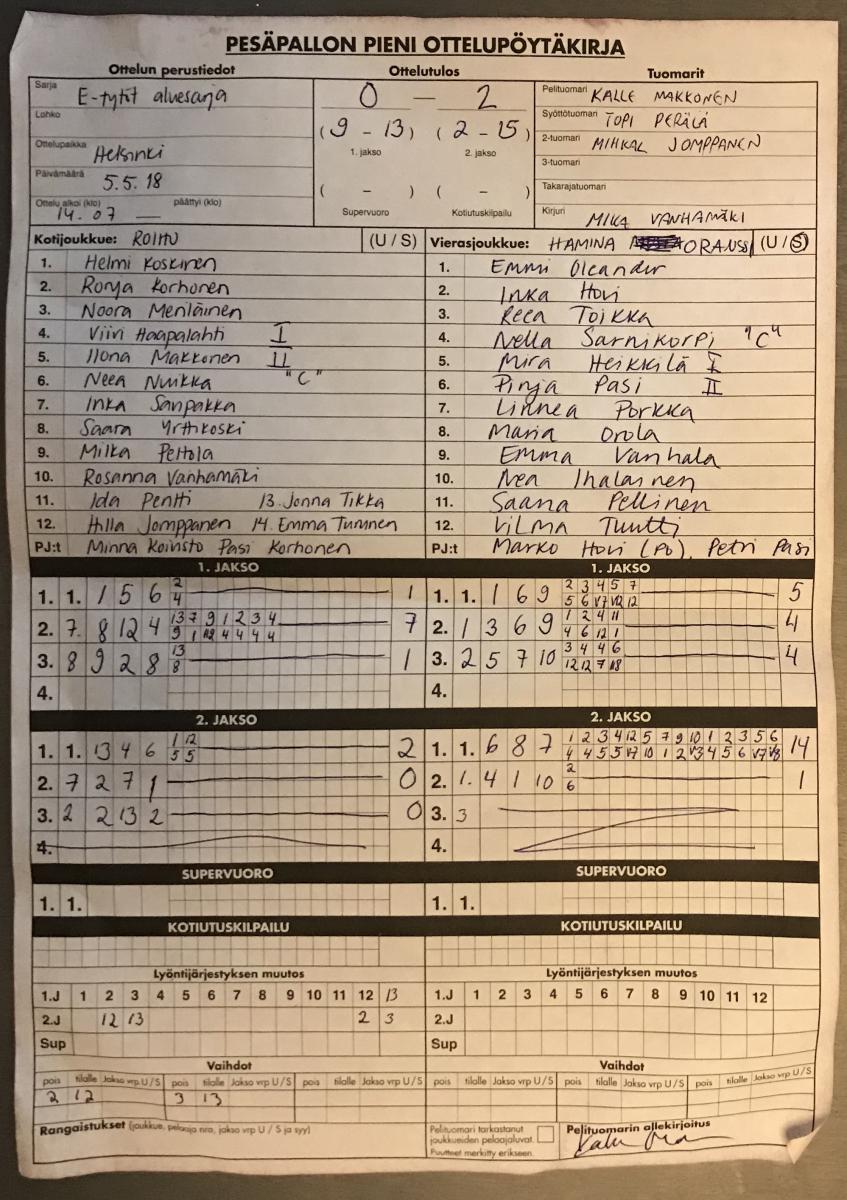 PESÄPALLON PIENI OTTELUPÖYTÄKIRJA
Ottelun perustiedot
Sarja E-tytöt aluesarja
Lohko
Ottelupaikka Helsinki
Päivämäärä 5.5.18
Ottelu alkoi (klo) päättyi (klo)
14.07 —
Ottelutulos
0 – 2
(9 - 13) (2 - 15)
1. jakso 2. jakso
( - ) ( - )
Supervuoro Kotiutuskilpailu
Tuomarit
Pelituomari KALLE MAKKONEN
Syöttötuomari TOPI PERÄLÄ
2-tuomari MIHKAL JOMPPANEN
3-tuomari
Takarajatuomari
Kirjuri MIKA VANHAMÄKI
Kotijoukkue: ROIHU (U / S)
1. Helmi Koskinen
2. Ronja Korhonen
3. Noora Meriläinen
4. Viivi Haapalahti I
5. Ilona Makkonen II
6. Neea Nuikka "C"
7. Inka Sanpakka
8. Saara Yrttikoski
9. Milka Peltola
10. Rosanna Vanhamäki
11. Ida Pentti 13. Jonna Tikka
12. Hilla Jomppanen 14. Emma Tumnen
PJ:t Minna Koivisto Pasi Korhonen
Vierasjoukkue: HAMINA ORANSSI (U / S)
1. Emmi Oleander
2. Inka Hovi
3. Reea Toikka
4. Nella Sarnikorpi "C"
5. Mira Heikkilä I
6. Pinja Pasi II
7. Linnea Porkka
8. Maria Orola
9. Emma Vanhala
10. Nea Ihalainen
11. Saana Pellinen
12. Vilma Tuutti
PJ:t Marko Hovi (PO), Petri Pasi
1. JAKSO
1. 1. 1 5 6 2 1
4
2. 7 8 12 4 13 7 9 1 2 3 4 7
9 1 12 4 4 4 4
3. 8 9 2 8 13 1
8
4.
1. JAKSO
1. 1. 1 6 9 2 3 4 5 7 5
5 6 V7 V12 12
2. 1 3 6 9 1 2 4 11 4
4 6 12 1
3. 2 5 7 10 3 4 4 6 4
12 12 7
4.
2. JAKSO
1. 1. 13 4 6 1 12 2
5 5
2. 7 2 7 1 0
3. 2 2 13 2 0
4.
2. JAKSO
1. 1. 6 8 7 1 2 3 4 12 5 7 9 10 1 2 3 5 6 14
4 4 5 5 V7 10 1 2 V3 4 5 6 V7 V8
2. 1. 4 1 10 2 1
6
3. 3
4.
SUPERVUORO
1. 1.
SUPERVUORO
1. 1.
KOTIUTUSKILPAILU
KOTIUTUSKILPAILU
Lyöntijärjestyksen muutos
1.J 1 2 3 4 5 6 7 8 9 10 11 12 13
2.J 12 13 2 3
Sup
Lyöntijärjestyksen muutos
1.J 1 2 3 4 5 6 7 8 9 10 11 12
2.J
Sup
Vaihdot
pois tilalle Jakso vrp U / S pois tilalle Jakso vrp U / S pois tilalle Jakso vrp U / S
2 12 3 13
Vaihdot
pois tilalle Jakso vrp U / S pois tilalle Jakso vrp U / S pois tilalle Jakso vrp U / S
Rangaistukset (joukkue, pelaaja nro, jakso vrp U / S ja syy)
Pelituomari tarkastanut
joukkueiden pelaajaluvat.
Puutteet merkitty erikseen.
Pelituomarin allekirjoitus